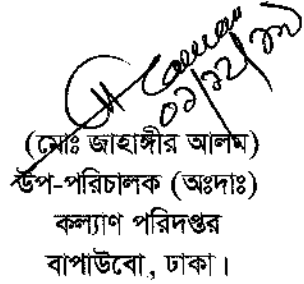 ০১/১২/১৯
(মোঃ জাহাঙ্গীর আলম)
উপ-পরিচালক (অঃদাঃ)
কল্যাণ পরিদপ্তর
বাপাউবো, ঢাকা।